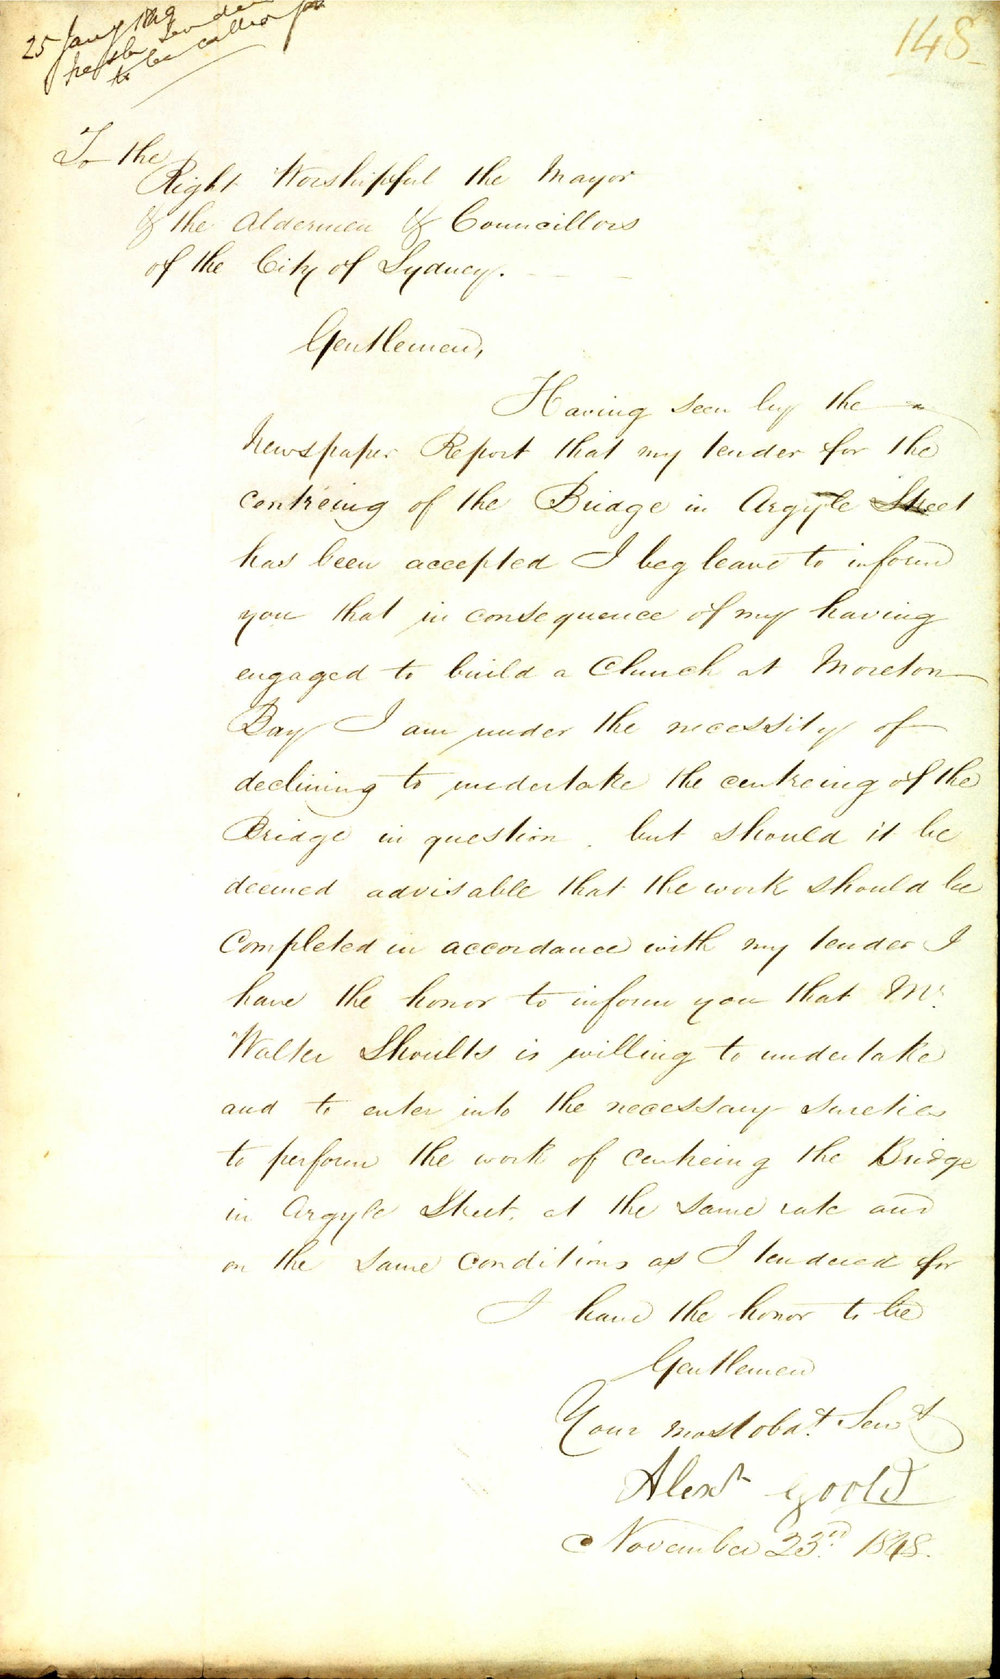 25 Jany 1849
fresh tenders
to be called for
148
To the
Right Worshipful the Mayor
& the Aldermen & Councillors
of the City of Sydney.
Gentlemen,
Having seen by the
Newspaper Report that my tender for the
centreing of the Bridge in Argyle Street
has been accepted I beg leave to inform
you that in consequence of my having
engaged to build a Church at Moreton
Bay I am under the necessity of
declining to undertake the centreing of the
Bridge in question. but should it be
deemed advisable that the work should be
Completed in accordance with my tender I
have the honor to inform you that Mr.
Walter Shoults is willing to undertake
and to enter into the necessary sureties
to perform the work of centreing the Bridge
in Argyle Street. at the same rate and
on the same conditions as I tendered for
I have the honor to be
Gentlemen
Your most obdt. Servt
Alexr Goold
November 23rd. 1848.